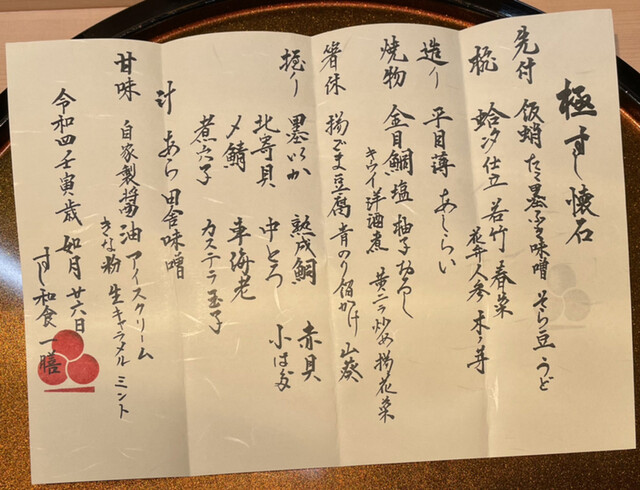 極すし懐石
先付 飯蛸 たたき 味噌 そら豆 うど
椀 蛤 仕立 若竹 春菜
花弁人参 木ノ芽
造り 平目薄 あしらい
焼物 金目鯛塩 柚子おろし
キウイ洋酒煮 黄ニラ炒め 揚花菜
箸休 揚ごま豆腐 青のり餡かけ 山葵
握り 墨いか 熟成鯛 赤貝
北寄貝 中とろ 小はだ
〆鯖 車海老
煮穴子 カステラ玉子
汁 あら 田舎味噌
甘味 自家製醤油アイスクリーム
きな粉 生キャラメル ミント
令和四壬寅歳 如月 廿六日
すし和食 一膳